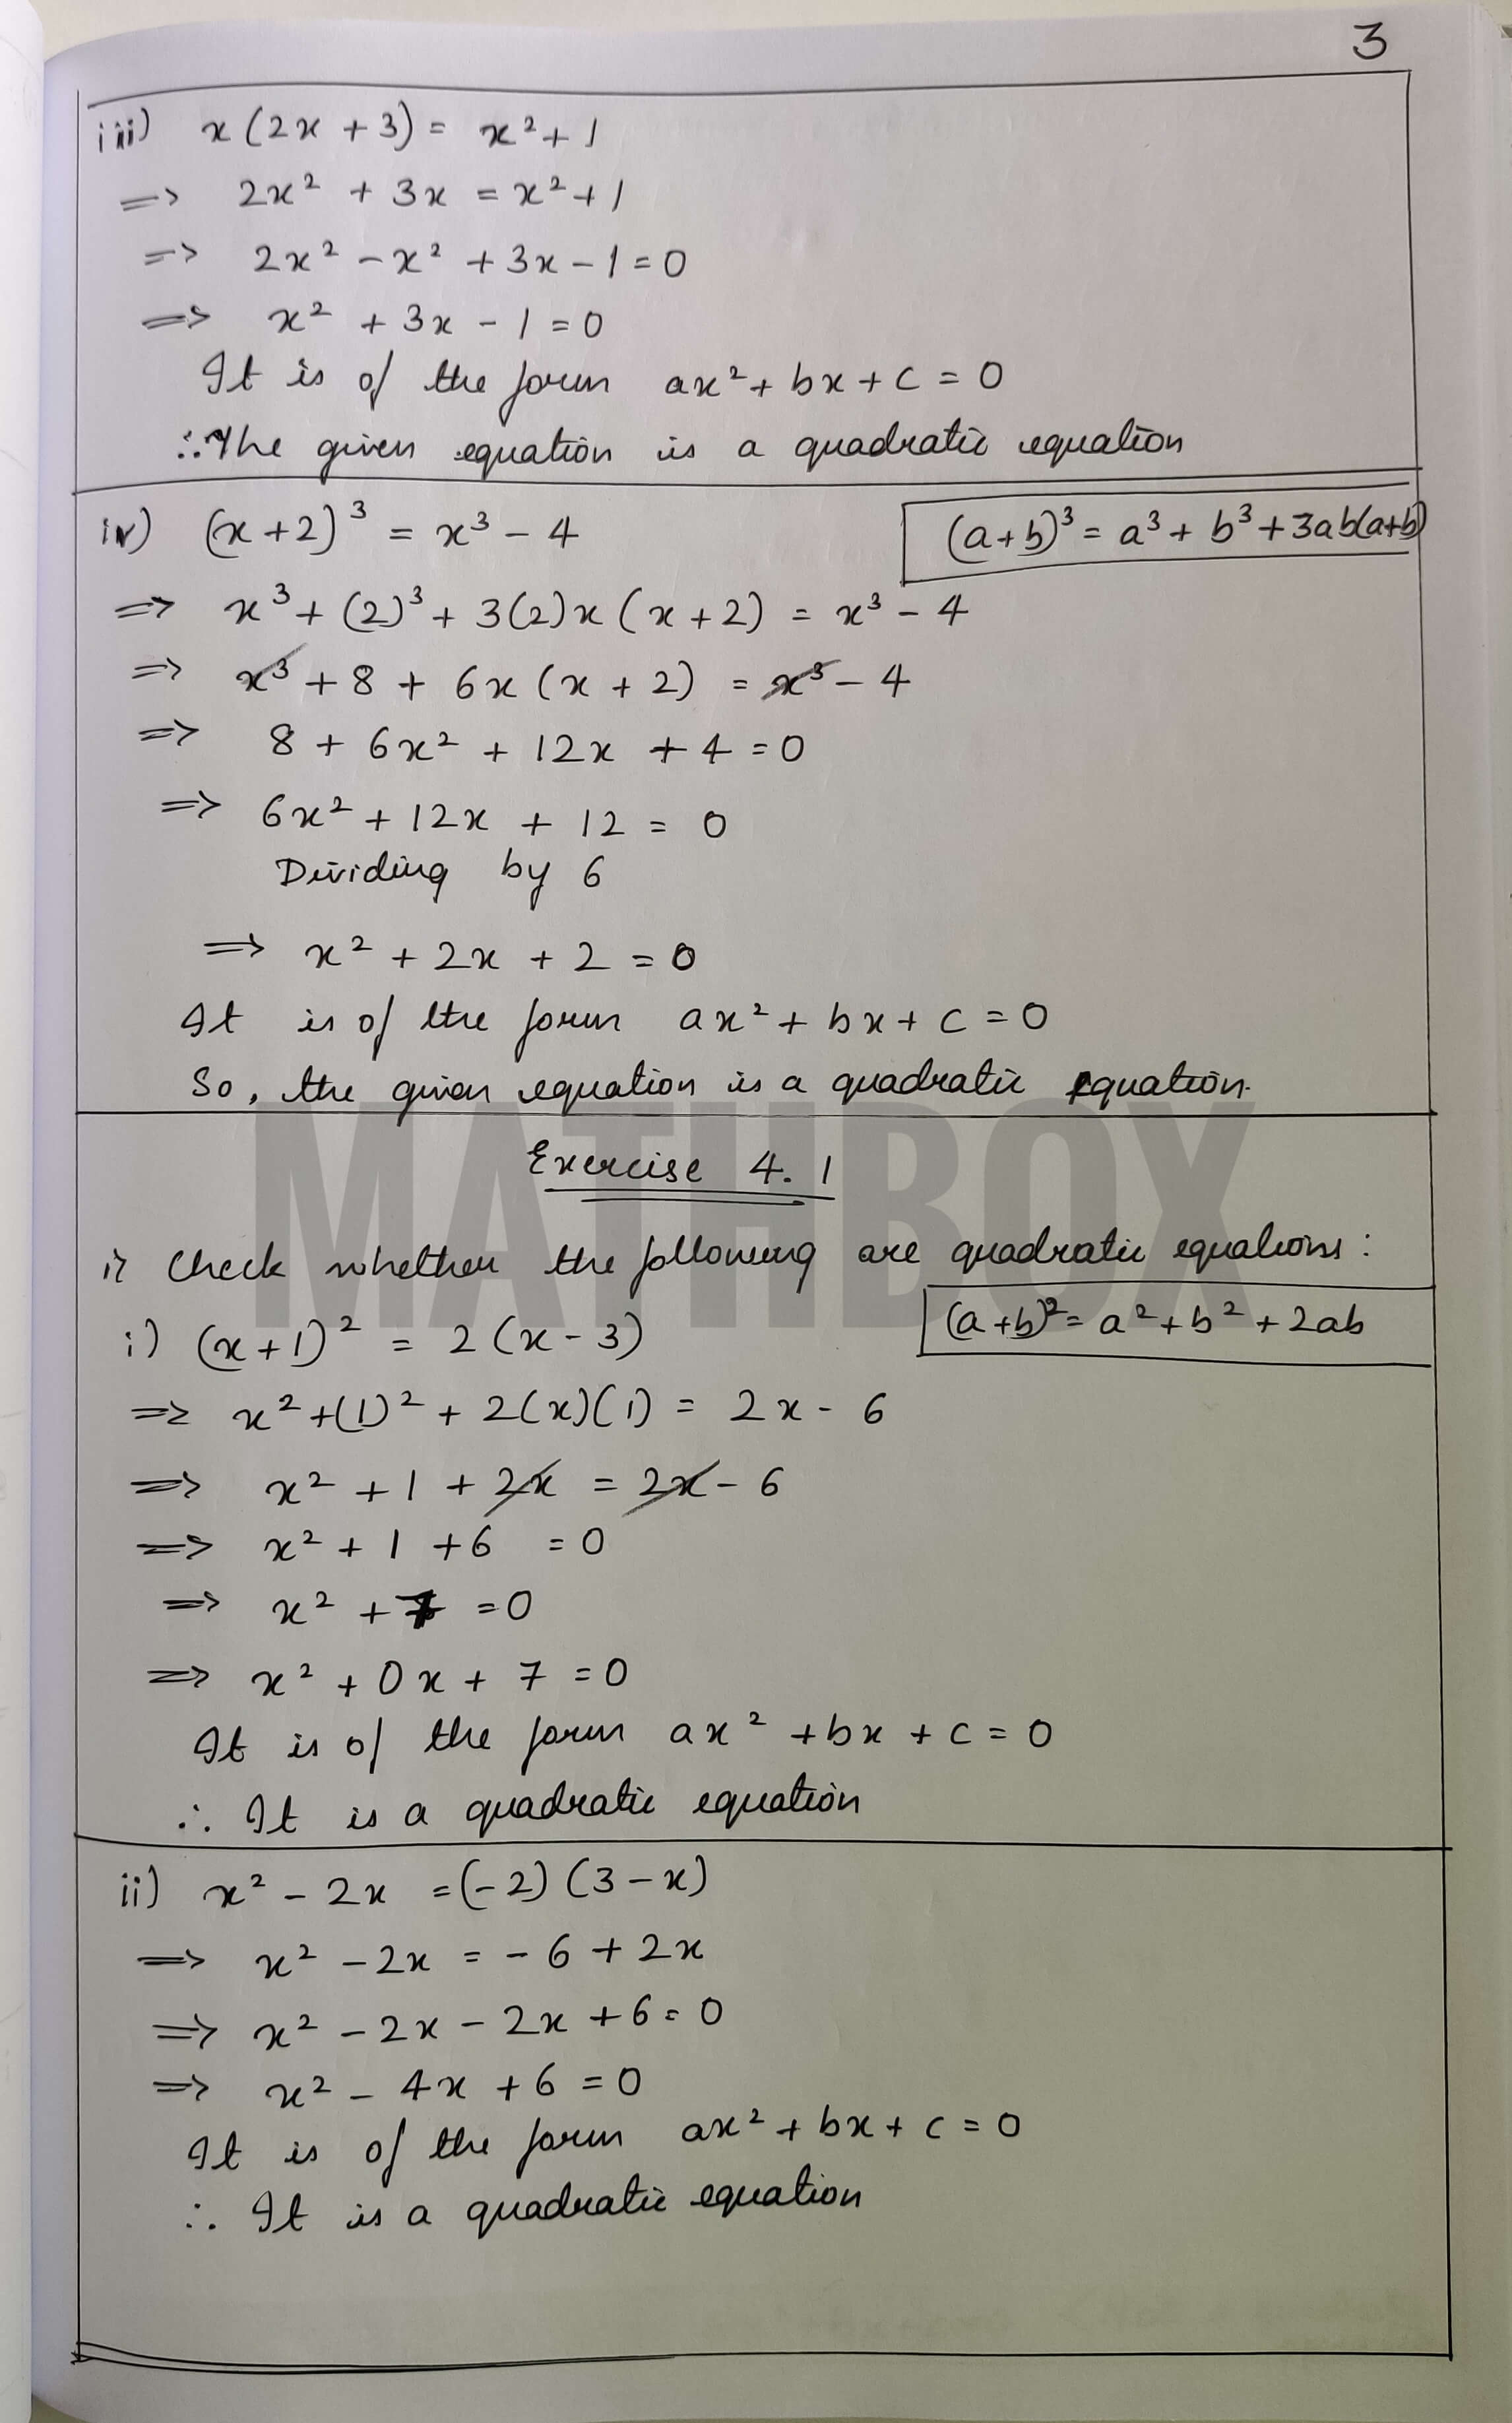 3
iii) x (2x + 3) = x² + 1
=> 2x² + 3x = x² + 1
=> 2x² - x² + 3x - 1 = 0
=> x² + 3x - 1 = 0
It is of the form ax² + bx + c = 0
∴ The given equation is a quadratic equation
iv) (x + 2)³ = x³ - 4
(a+b)³ = a³ + b³ + 3ab(a+b)
=> x³ + (2)³ + 3(2)x (x + 2) = x³ - 4
=> x³ + 8 + 6x (x + 2) = x³ - 4
=> 8 + 6x² + 12x + 4 = 0
=> 6x² + 12x + 12 = 0
Dividing by 6
=> x² + 2x + 2 = 0
It is of the form ax² + bx + c = 0
So, the given equation is a quadratic equation.
MATHBOX
Exercise 4.1
1) Check whether the following are quadratic equations:
i) (x+1)² = 2 (x - 3)
(a+b)² = a² + b² + 2ab
=> x² + (1)² + 2(x)(1) = 2x - 6
=> x² + 1 + 2x = 2x - 6
=> x² + 1 + 6 = 0
=> x² + 7 = 0
=> x² + 0x + 7 = 0
It is of the form ax² + bx + c = 0
∴ It is a quadratic equation
ii) x² - 2x = (-2) (3 - x)
=> x² - 2x = - 6 + 2x
=> x² - 2x - 2x + 6 = 0
=> x² - 4x + 6 = 0
It is of the form ax² + bx + c = 0
∴ It is a quadratic equation